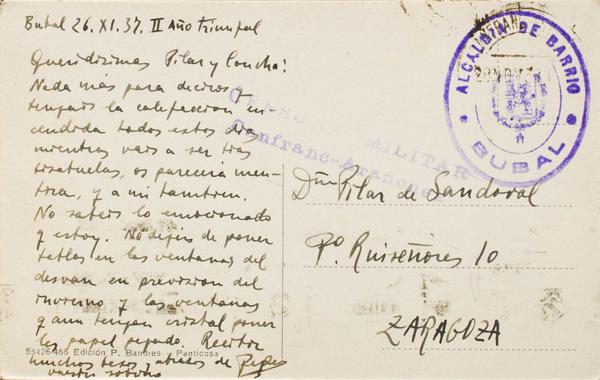 Bubal 26. XI. 37. II Año Triunfal
Queridísimas Pilar y Concha:
Nada más para deciros q
tengais la calefaccion en
cendida todos estos dias
mientras vais a ser tres
os pareceria men-
tira, y a mi tambien.
No sabeis lo emocionado
q estoy. No dejeis de poner
tablas en las ventanas del
desvan en prevision del
invierno y las ventanas
q aun tengan cristal poner
les papel pegado. Recibir
muchos besos y abrazos de Pepe
vuestro sobrino
55426-466 Edición P. Bandres - Panticosa
CENSURA MILITAR
Canfranc-Arañones
ALCALDIA DE BARRIO
BUBAL
Dña Pilar de Sandoval
Pº. Ruiseñores 10
ZARAGOZA